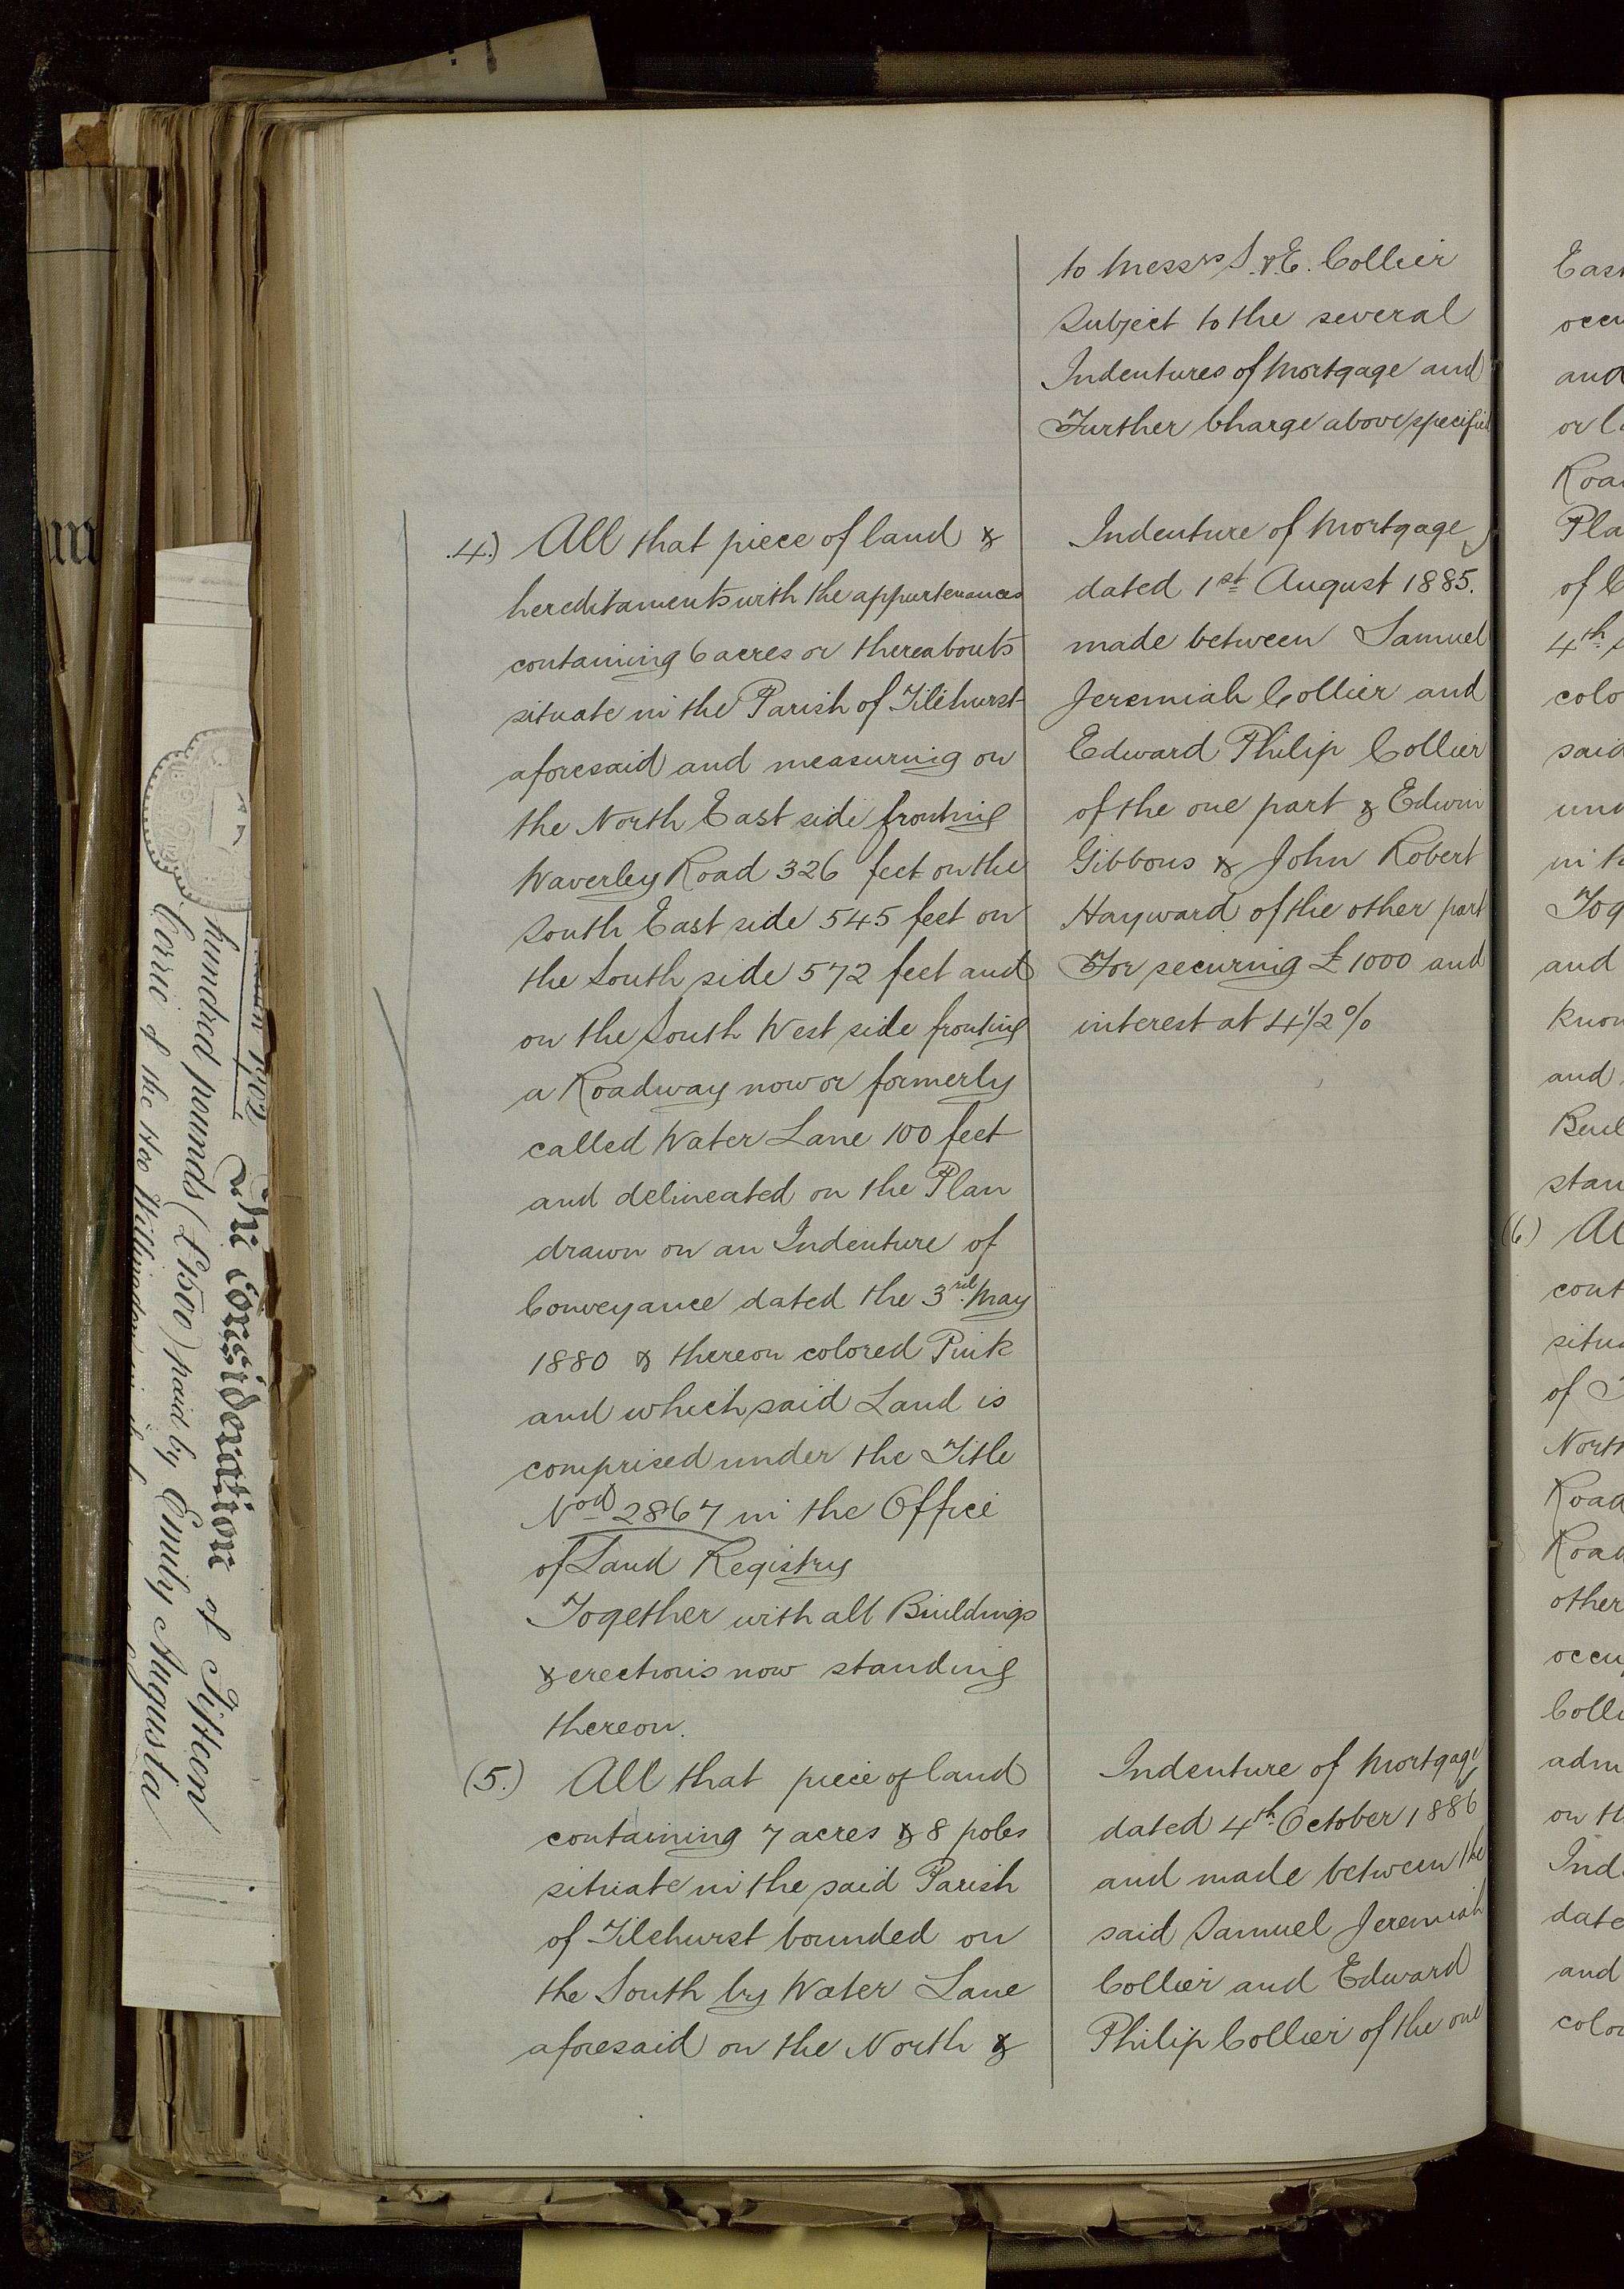 to Messrs S. & E. Collier
Subject to the several
Indentures of Mortgage and
Further Charge above specified
4.) All that piece of land &
hereditaments with the appurtenances
containing 6 acres or thereabouts
situate in the Parish of Tilehurst
aforesaid and measuring on
the North East side fronting
Waverley Road 326 feet on the
South East side 545 feet on
the South side 572 feet and
on the South West side fronting
a Roadway now or formerly
called Water Lane 100 feet
and delineated on the Plan
drawn on an Indenture of
Conveyance dated the 3rd May
1880 & thereon colored Pink
and which said Land is
comprised under the Title
Nod 2867 in the Office
of Land Registry
Together with all Buildings
& erections now standing
thereon.
Indenture of Mortgage
dated 1st August 1885.
made between Samuel
Jeremiah Collier and
Edward Philip Collier
of the one part & Edwin
Gibbons & John Robert
Hayward of the other part
For securing £1000 and
interest at 4 1/2 %
(5.) All that piece of land
containing 7 acres & 8 poles
situate in the said Parish
of Tilehurst bounded on
the South by Water Lane
aforesaid on the North &
Indenture of Mortgage
dated 4th October 1886
and made between the
said Samuel Jeremiah
Collier and Edward
Philip Collier of the one
1902 The Consideration of Fifteen
hundred pounds (£1500) paid by Emily Augusta
Corrie of the Hoo Willingdon
East
occu
and
or
Road
Pla
of
4th
colo
said
und
in
Tog
and
know
and
Buil
stan
(6) Al
cont
situa
of
North
Road
Road
other
occu
Colli
adm
on th
Inde
date
and
color